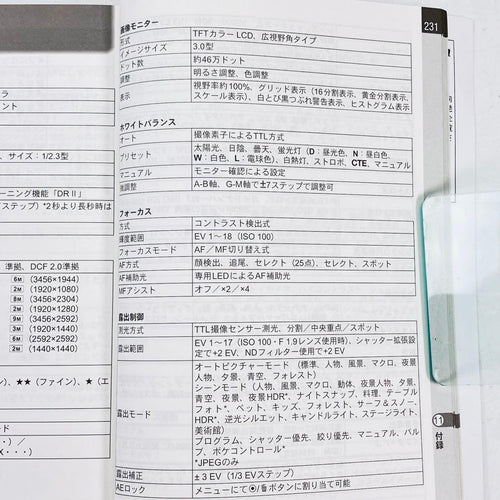 231
画像モニター
形式 TFTカラー LCD、広視野角タイプ
イメージサイズ 3.0型
ドット数 約46万ドット
調整 明るさ調整、色調整
表示 視野率約100%、グリッド表示（16分割表示、黄金分割表示、
スケール表示）、白とび黒つぶれ警告表示、ヒストグラム表示
ホワイトバランス
オート 撮像素子によるTTL方式
プリセット 太陽光、日陰、曇天、蛍光灯（D：昼光色、N：昼白色、
W：白色、L：電球色）、白熱灯、ストロボ、CTE、マニュアル
マニュアル モニター確認による設定
微調整 A-B軸、G-M軸で±7ステップで調整可
フォーカス
方式 コントラスト検出式
輝度範囲 EV 1～18（ISO 100）
フォーカスモード AF／MF切り替え式
AF方式 顔検出、追尾、セレクト（25点）、セレクト、スポット
AF補助光 専用LEDによるAF補助光
MFアシスト オフ／×2／×4
露出制御
測光方式 TTL撮像センサー測光、分割／中央重点／スポット
露出範囲 EV 1～17（ISO 100・F 1.9レンズ使用時）、シャッター拡張設
定で+2 EV、NDフィルター使用で+2 EV
露出モード オートピクチャーモード（標準、人物、風景、マクロ、夜景
人物、夕景、青空、フォレスト）
シーンモード（人物、風景、マクロ、動体、夜景人物、夕景、
青空、夜景、夜景HDR*、ナイトスナップ、料理、テーブル
フォト*、ペット、キッズ、フォレスト、サーフ＆スノー、
HDR*、逆光シルエット、キャンドルライト、ステージライト、
美術館）
プログラム、シャッター優先、絞り優先、マニュアル、バル
ブ、ポケコントロール*
*JPEGのみ
露出補正 ±3 EV（1/3 EVステップ）
AEロック メニューにて/ボタンに割り当て可能
11
付録
、サイズ：1/2.3型
ーニング機能「DRⅡ」
ステップ）*2秒より長秒時は
準拠、DCF 2.0準拠
6M（3456×1944）
2M（1920×1080）
8M（3456×2304）
2M（1920×1280）
9M（3456×2592）
3M（1920×1440）
6M（2592×2592）
2M（1440×1440）
）、★★（ファイン）、★（エ
ード